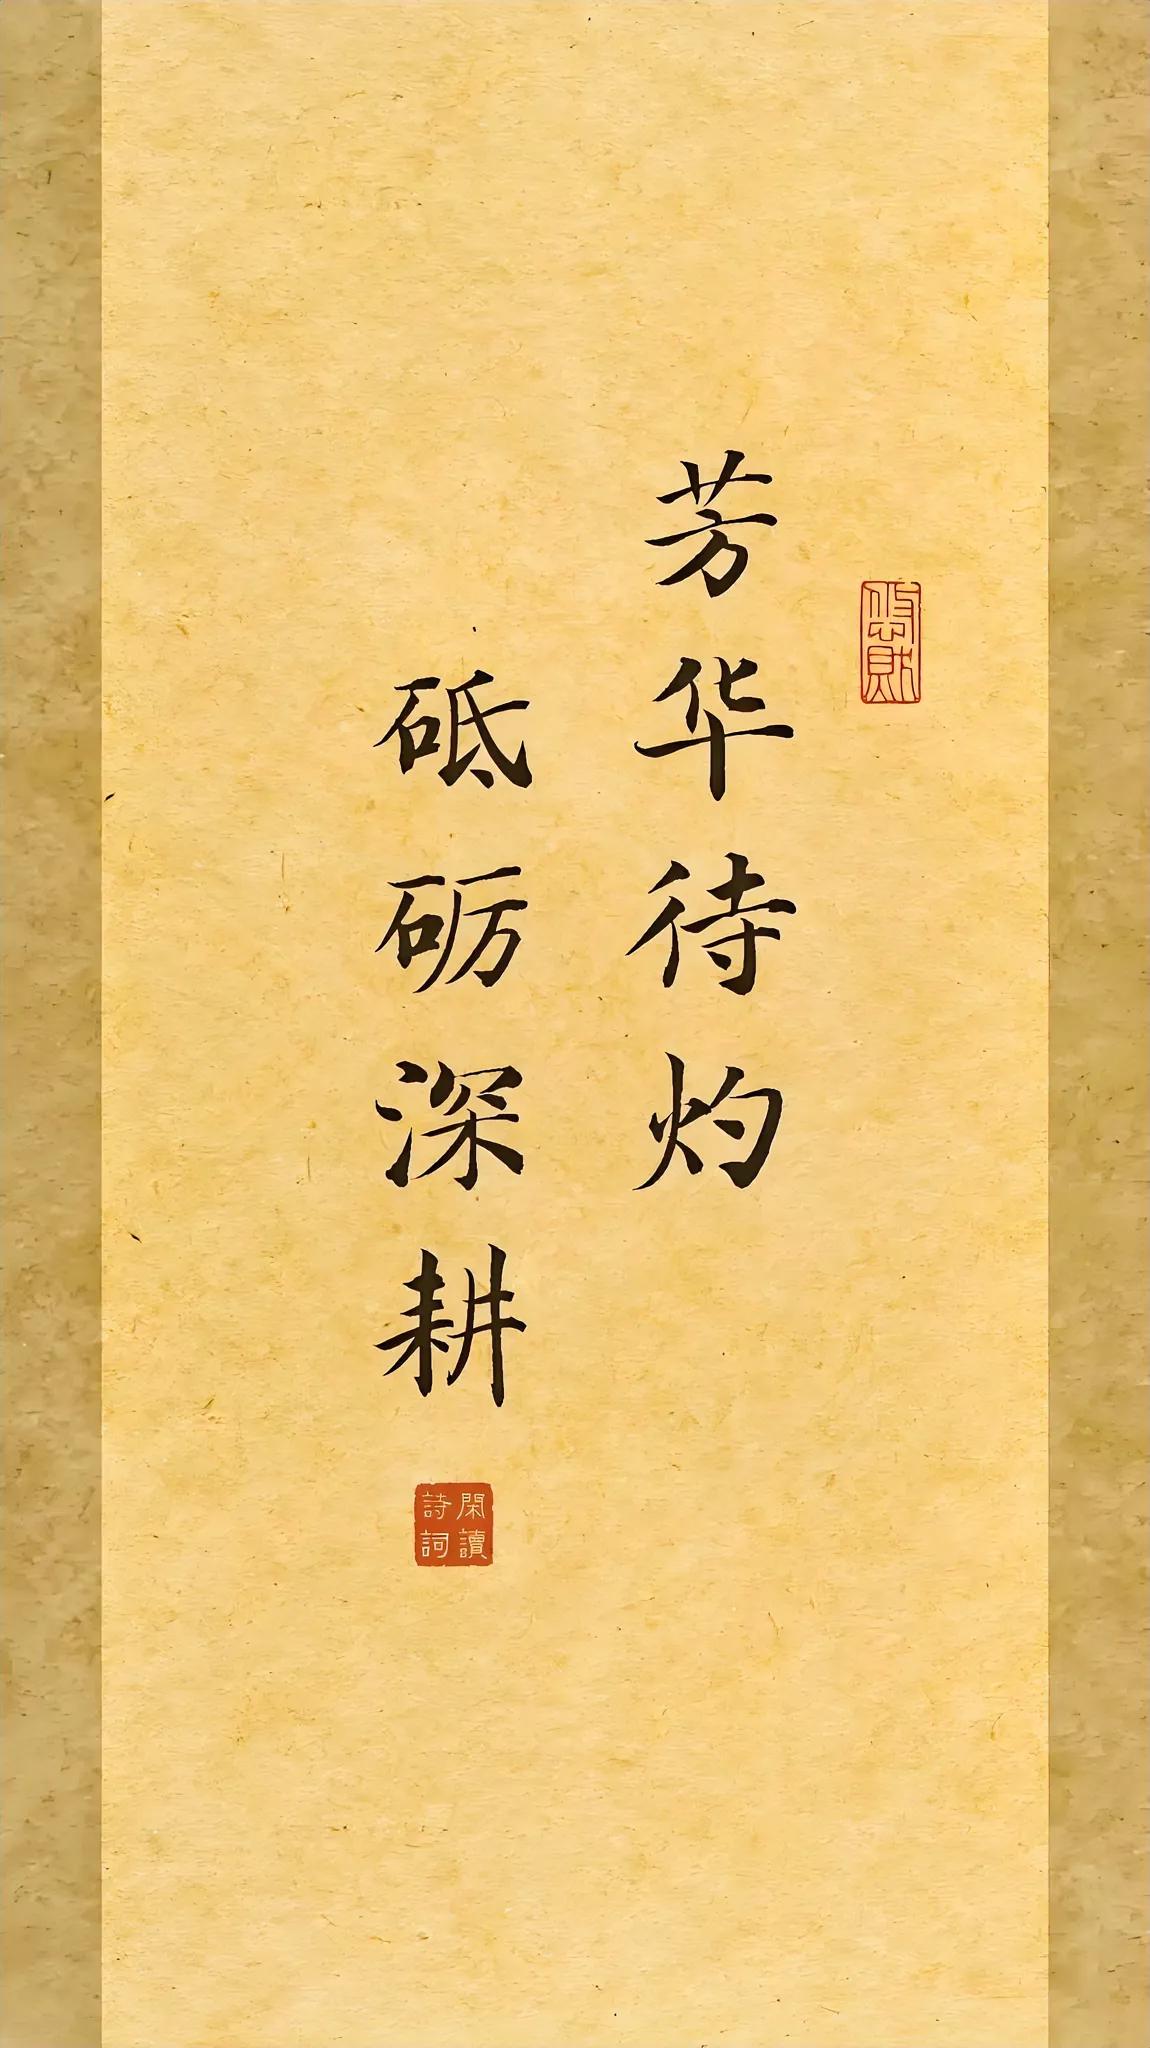 芳华待灼
砥砺深耕
閑讀
詩詞